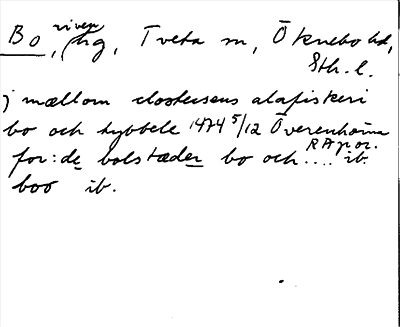 Bo, riven hg, Tveta sn, Öknebo hd,
Sth. l.
j mællom closteresens alafiskeri
bo och hybbele 1474 5/12 Överenhörna
RAp or.
for: de bolstæder bo och .... ib.
boo ib.